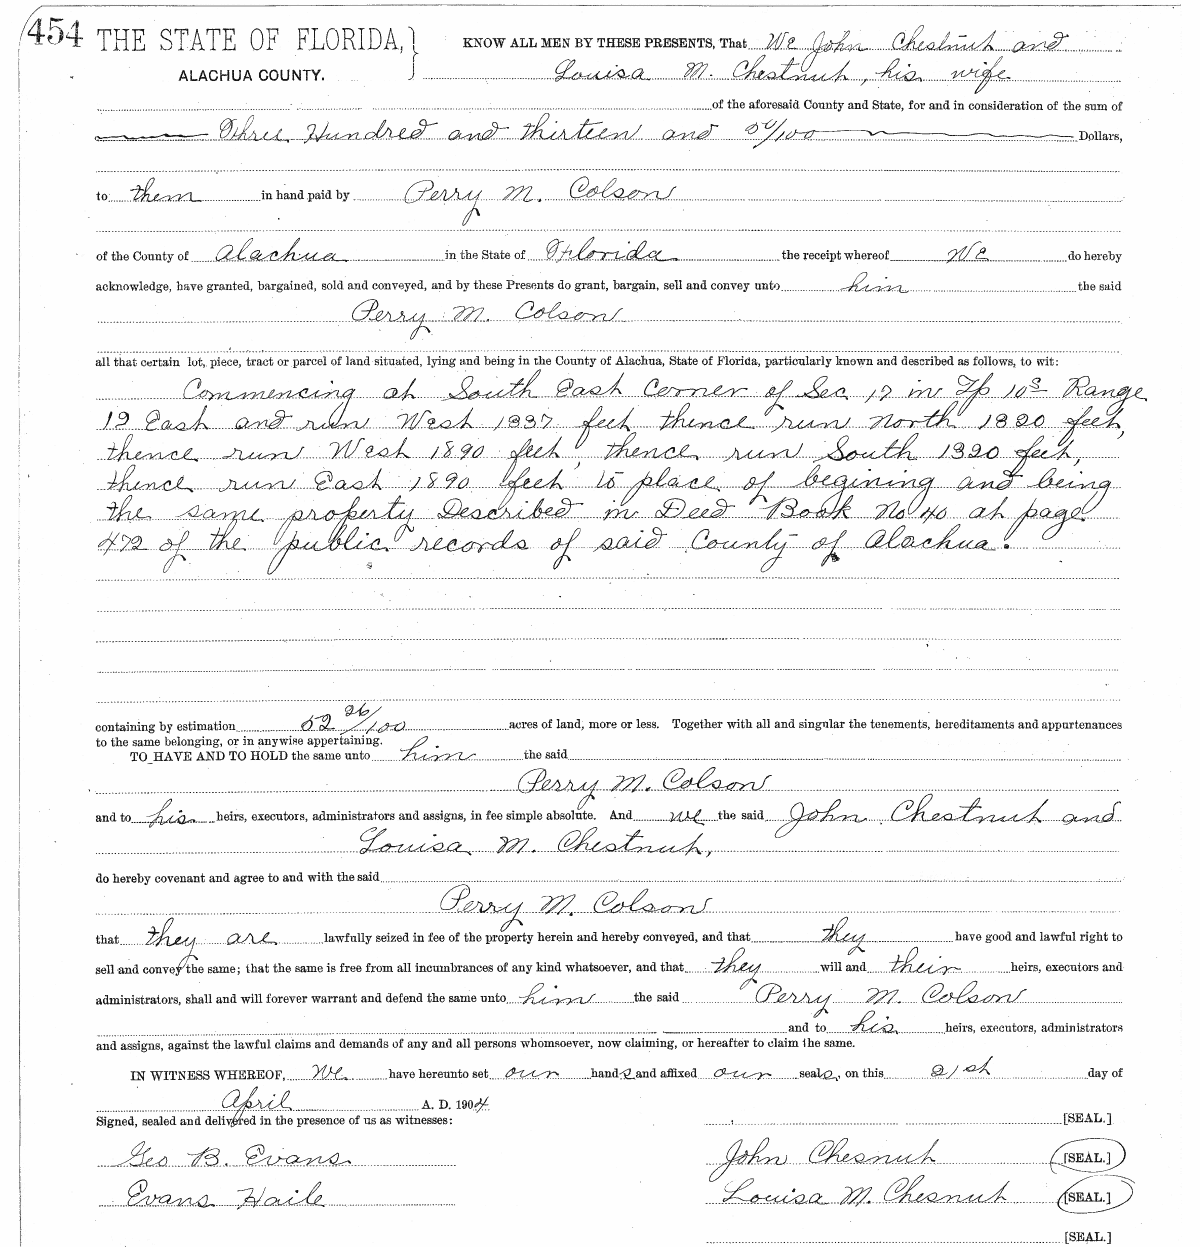 454 THE STATE OF FLORIDA,} KNOW ALL MEN BY THESE PRESENTS, That We John Chestnut and
ALACHUA COUNTY. Louisa M. Chestnut, his wife
of the aforesaid County and State, for and in consideration of the sum of
Three Hundred and thirteen and 50/100 Dollars,
to them in hand paid by Perry M. Colson
of the County of Alachua in the State of Florida the receipt whereof We do hereby
acknowledge, have granted, bargained, sold and conveyed, and by these Presents do grant, bargain, sell and convey unto him the said
Perry M. Colson
all that certain lot, piece, tract or parcel of land situated, lying and being in the County of Alachua, State of Florida, particularly known and described as follows, to wit:
Commencing at South East Corner of Sec 17 in Tp 10 S Range
19 East and run West 1337 feet thence run North 1320 feet,
thence run West 1890 feet, thence run South 1320 feet,
thence run East 1890 feet to place of begining and being
the same property Described in Deed Book No 40 at page
472 of the public records of said County of Alachua.
containing by estimation 52 26/100 acres of land, more or less. Together with all and singular the tenements, hereditaments and appurtenances
to the same belonging, or in anywise appertaining.
TO HAVE AND TO HOLD the same unto him the said
Perry M. Colson
and to his heirs, executors, administrators and assigns, in fee simple absolute. And we the said John Chestnut and
Louisa M. Chestnut,
do hereby covenant and agree to and with the said
Perry M. Colson
that they are lawfully seized in fee of the property herein and hereby conveyed, and that they have good and lawful right to
sell and convey the same; that the same is free from all incumbrances of any kind whatsoever, and that they will and their heirs, executors and
administrators, shall and will forever warrant and defend the same unto him the said Perry M. Colson
and to his heirs, executors, administrators
and assigns, against the lawful claims and demands of any and all persons whomsoever, now claiming, or hereafter to claim the same.
IN WITNESS WHEREOF, We have hereunto set our hands and affixed our seals, on this 21st day of
April A. D. 1904
Signed, sealed and delivered in the presence of us as witnesses: [SEAL.]
Geo B. Evans John Chesnut [SEAL.]
Evans Haile Louisa M. Chesnut [SEAL.]
[SEAL.]